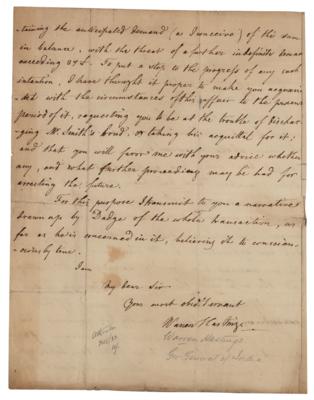 taining the anticipated demand (as I conceive) of the sum
in balance, with the threat of a further indefinite demand
exceeding
To put a stop to the progress of any such
intention, I have thought it proper to make you acquain-
ted with the circumstances of this affair to the present
period of it, requesting you to be at the trouble of dischar-
ging Mr. Smith's bond, or taking his acquittal for it;
and that you will favor me with your advice whether
any, and what further proceedings may be had for
arresting the future.
For this purpose I transmit to you a narrative
drawn up by Dadge of the whole transaction, as
far as he is concerned in it, believing it to
be true.
I am
My dear Sir
Your most obed. Servant
Warren Hastings
Warren Hastings
Gov General of India